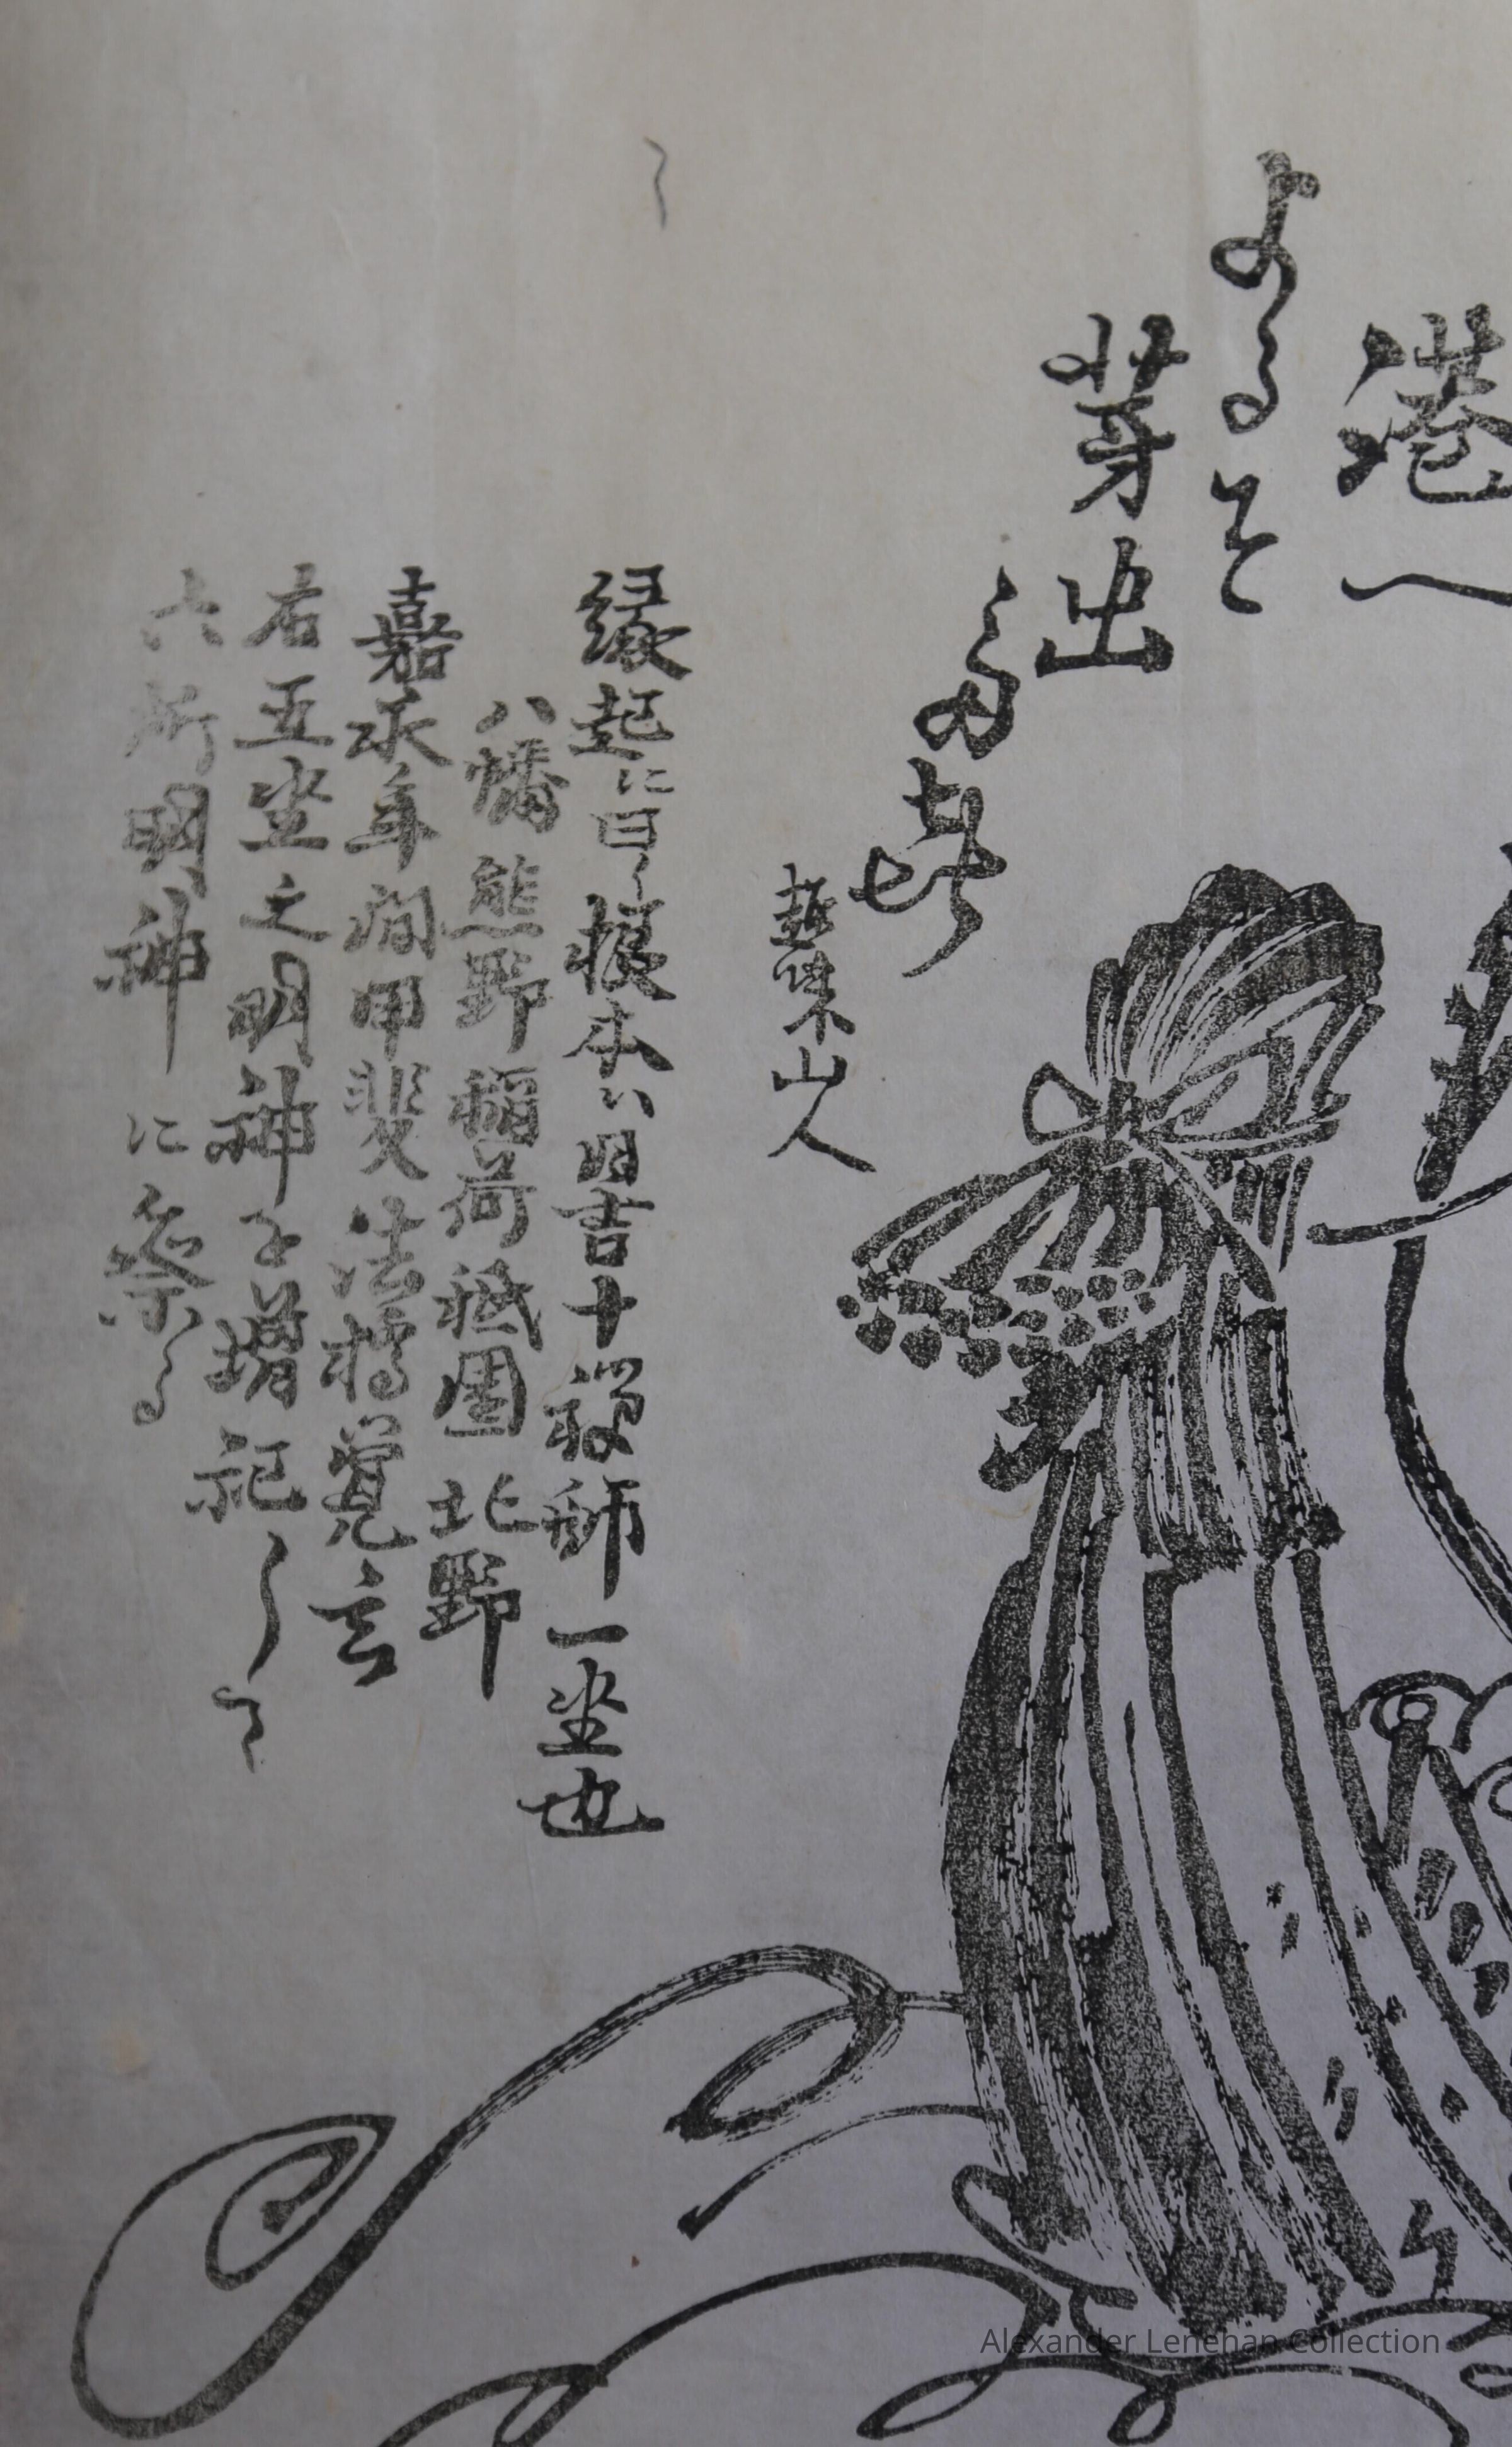 港へ
よるそ
芽出
多喜
趣味山人
縁起に曰く根本ハ日吉十禅師一坐也
八幡熊野稲荷祗園北野
嘉承年間甲斐法橋覚玄
右五坐之明神を増祀して
六所明神に祭る
Alexander Lenehan Collection